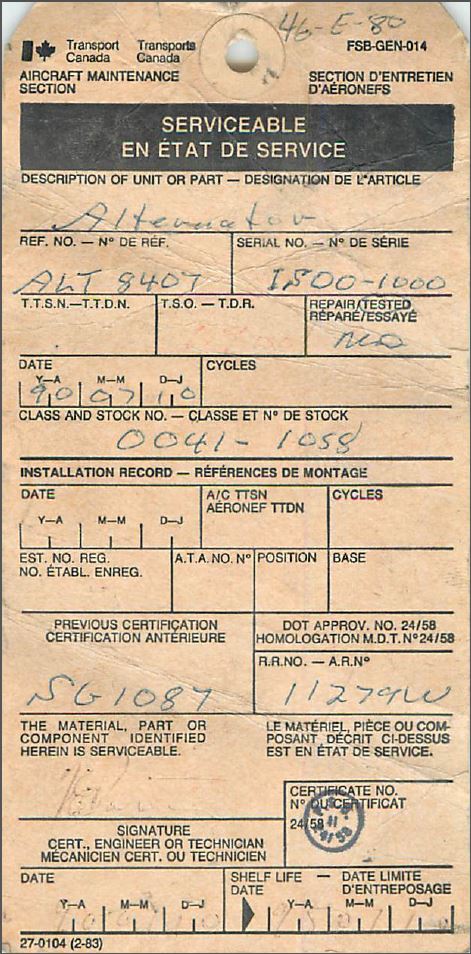 46-E-80
Transport Canada Transports Canada FSB-GEN-014
AIRCRAFT MAINTENANCE SECTION SECTION D'ENTRETIEN D'AÉRONEFS
SERVICEABLE
EN ÉTAT DE SERVICE
DESCRIPTION OF UNIT OR PART — DESIGNATION DE L'ARTICLE
Alternator
REF. NO. — N° DE RÉF. SERIAL NO. — N° DE SÉRIE
ALT 8407 1500-1000
T.T.S.N.—T.T.D.N. T.S.O. — T.D.R. REPAIR/TESTED
RÉPARÉ/ESSAYÉ
DATE CYCLES
Y—A M—M D—J
90 07 10
CLASS AND STOCK NO. — CLASSE ET N° DE STOCK
0041-1058
INSTALLATION RECORD — RÉFÉRENCES DE MONTAGE
DATE A/C TTSN CYCLES
AÉRONEF TTDN
Y—A M—M D—J
EST. NO. REG. A.T.A. NO. N° POSITION BASE
NO. ÉTABL. ENREG.
PREVIOUS CERTIFICATION DOT APPROV. NO. 24/58
CERTIFICATION ANTÉRIEURE HOMOLOGATION M.D.T. N° 24/58
R.R.NO. — A.R.N°
SG1087 11279W
THE MATERIAL, PART OR COMPONENT IDENTIFIED HEREIN IS SERVICEABLE. LE MATÉRIEL, PIÈCE OU COMPOSANT DÉCRIT CI-DESSUS EST EN ÉTAT DE SERVICE.
CERTIFICATE NO.
N° DU CERTIFICAT
24/58
SIGNATURE
CERT., ENGINEER OR TECHNICIAN
MÉCANICIEN CERT. OU TECHNICIEN
DATE SHELF LIFE — DATE LIMITE
DATE D'ENTREPOSAGE
Y—A M—M D—J Y—A M—M D—J
27-0104 (2-83)